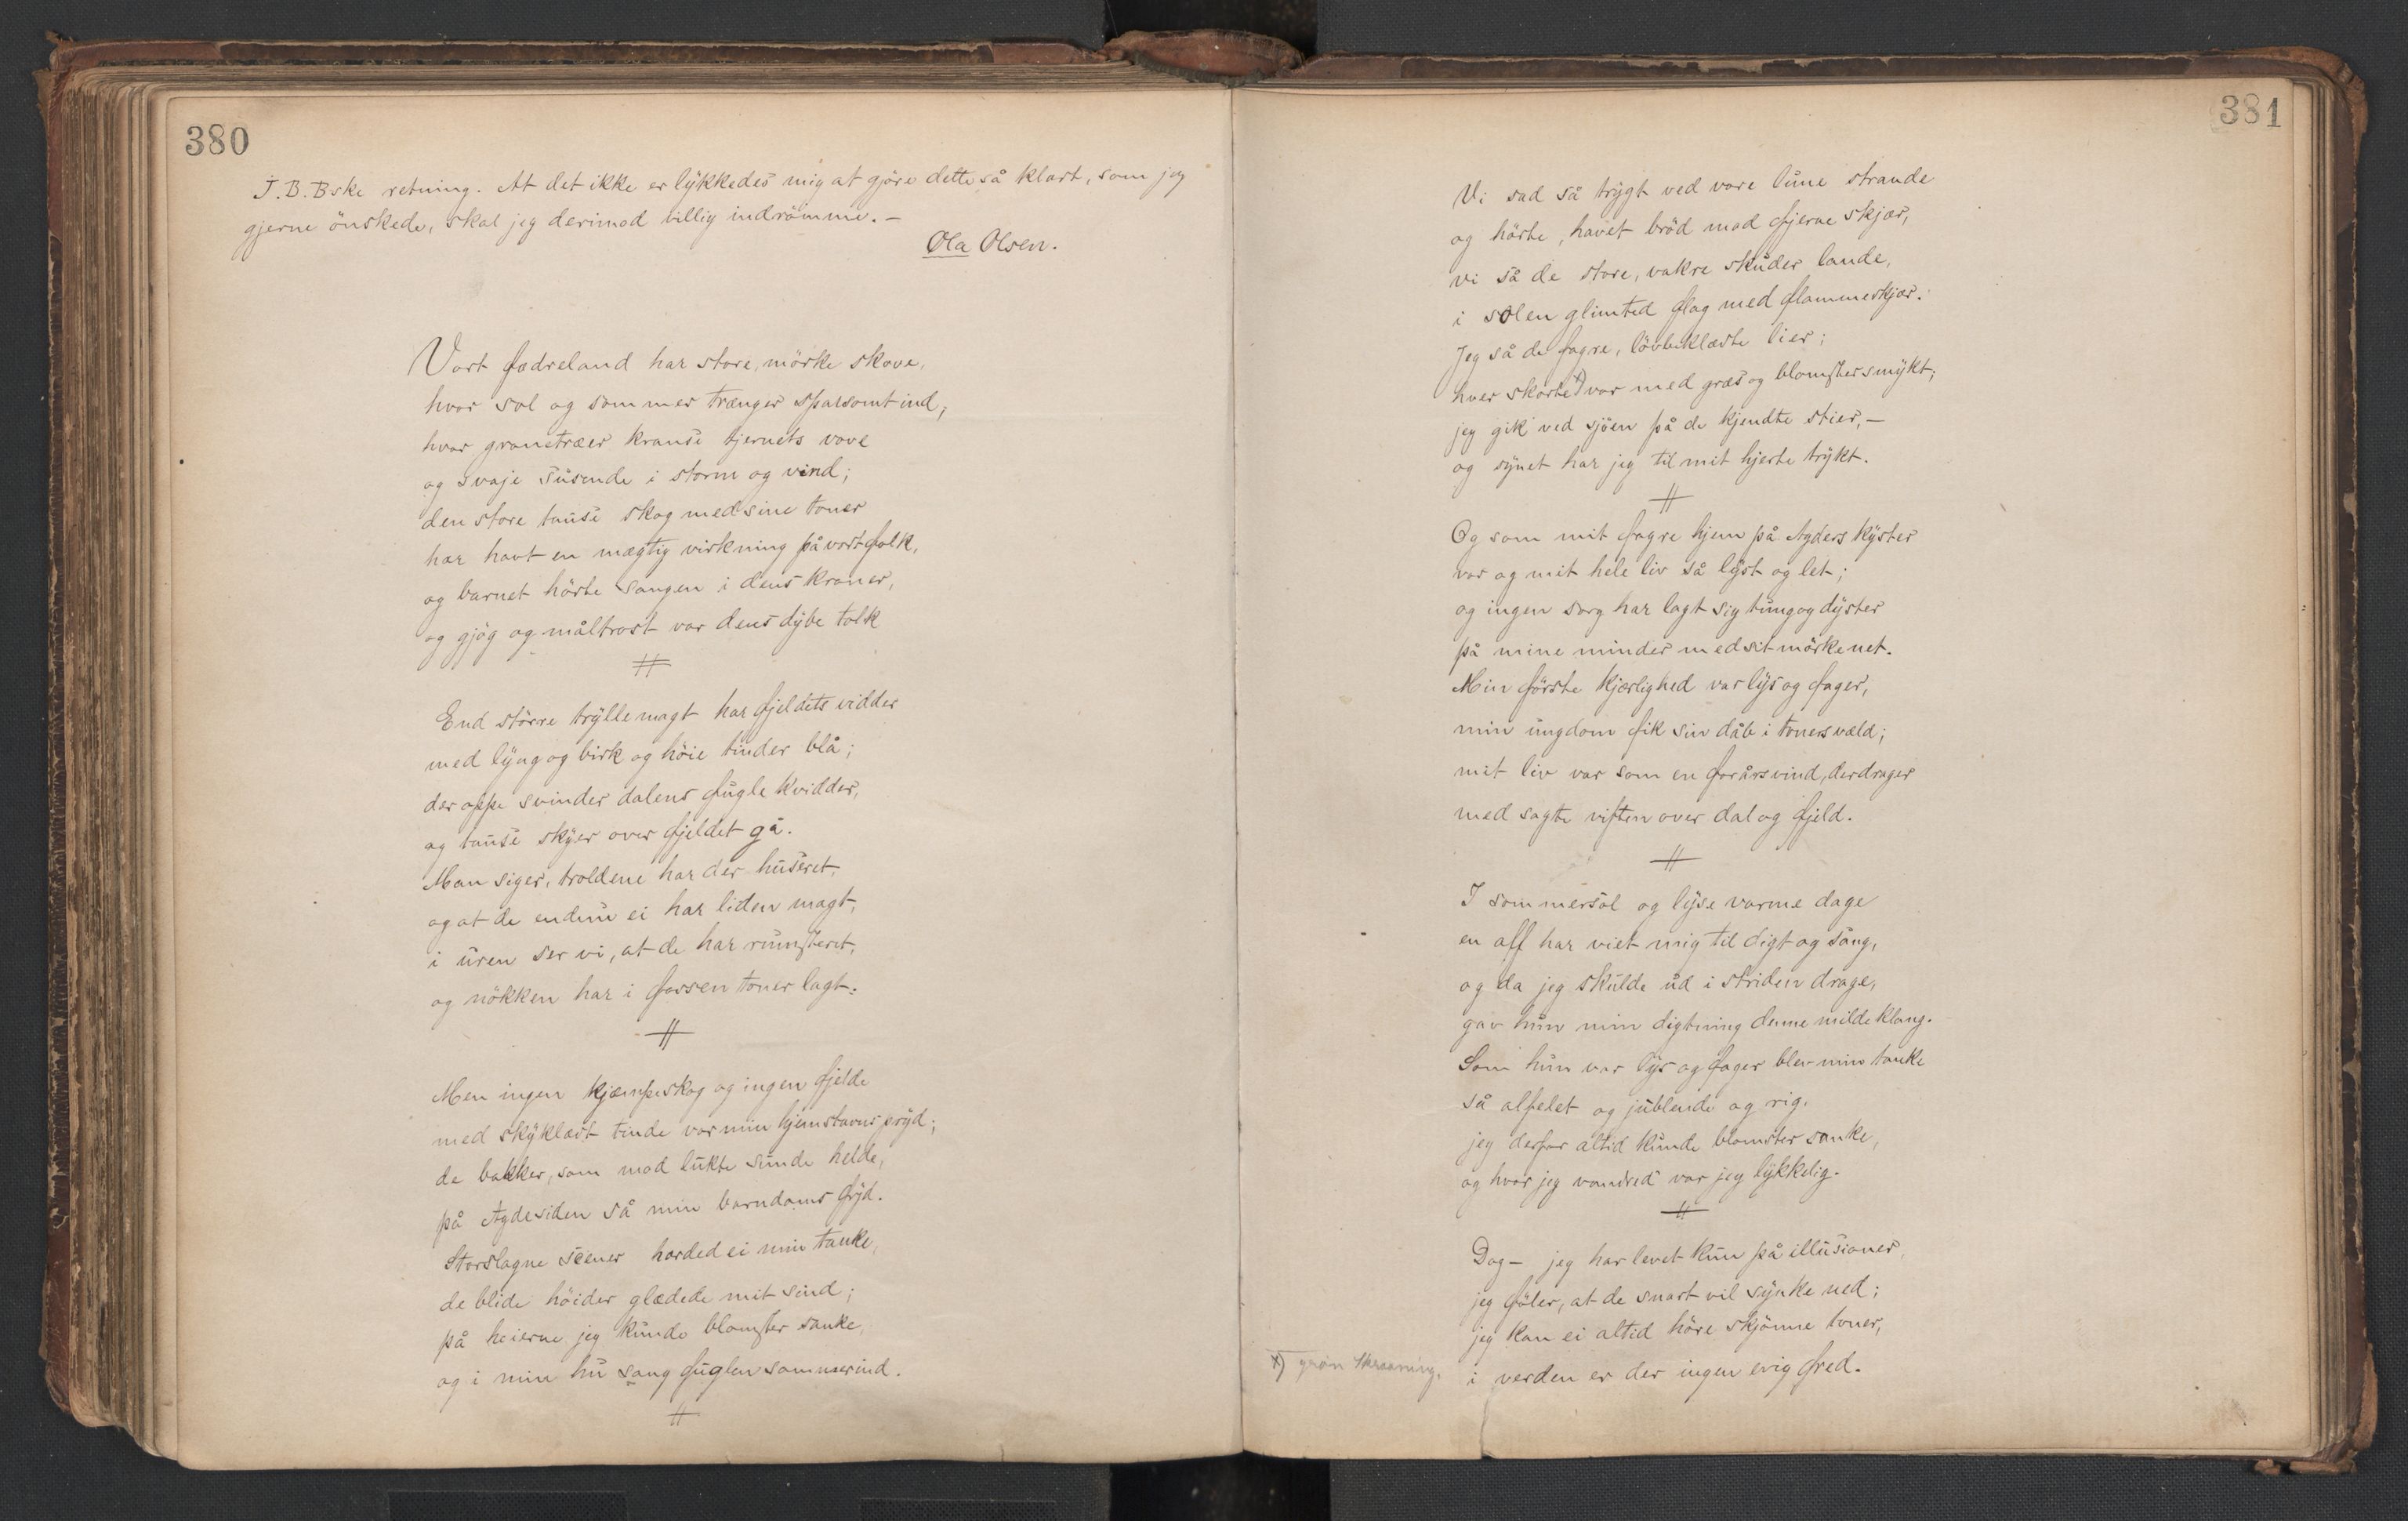 380
J.B.Bske retning. At det ikke er lykkedes mig at gjøre dette så klart, som jeg
gjerne önskede, skal jeg derimod villig indrömme. –
Ola Olsen.
Vort fædreland har store, mörke skove,
hvor sol og sommer trænger sparsomt ind,
hvor granetræer kranse tjernets vove
og svaje susende i storm og vind;
den store tause skog med sine toner
har havt en mægtig virkning på vort folk,
og barnet hörte sangen i dens kroner,
og gjög og måltrost var dens dybe tolk
#
End större tryllemagt har fjeldets vidder
med lyng og birk og höie tinder blå;
der oppe svinder dalens fugle kvidder,
og tause skyer over fjeldet gå.
Man siger, troldene har der huseret,
og at de endnu ei har liden magt,
i uren ser vi, at de har rumsteret,
og nökken har i fossen toner lagt.
#
Men ingen kjæmpeskog og ingen fjelde
med skyklædt tinde var min hjemstavns pryd;
de bakker, som mod lukte sunde helde,
på Agdesiden så min barndoms fryd.
Storslagne scener hærded ei min tanke,
de blide höider glædede mit sind;
på heierne jeg kunde blomster sanke,
og i min hu sang fuglen sommer ind.
#
381
Vi sad så trygt ved vore lune strande
og hörte, havet bröd mod fjerne skjær,
vi så de store, vakre skuder lande,
i solen glimted flag med flammeskjær.
Jeg så de fagre, lövbeklædte lier;
hver skorte x) var med græs og blomster smykt;
jeg gik ved sjöen på de kjendte stier, –
og synet har jeg til mit hjerte trykt.
#
Og som mit fagre hjem på Agders kyster
var og mit hele liv så lyst og let;
og ingen sorg har lagt sig tung og dyster
på mine minder med sit mörke net.
Min förste kjærlighed var lys og fager,
min ungdom fik sin dåb i toners væld;
mit liv var som en forårsvind, der drager
med sagte viften over dal og fjeld.
#
I sommersol og lyse varme dage
en alf har viet mig til digt og sang,
og da jeg skulde ud i striden drage,
gav hun min digtning denne milde klang.
Som hun var lys og fager blev min tanke
så alfelet og jublende og rig.
jeg derfor altid kunde blomster sanke,
og hvor jeg vandred var jeg lykkelig.
#
Dog – jeg har levet kun på illusioner,
jeg föler, at de snart vil synke ned;
jeg kan ei altid höre skjönne toner,
i verden er der ingen evig fred.
x) grön skraaning.